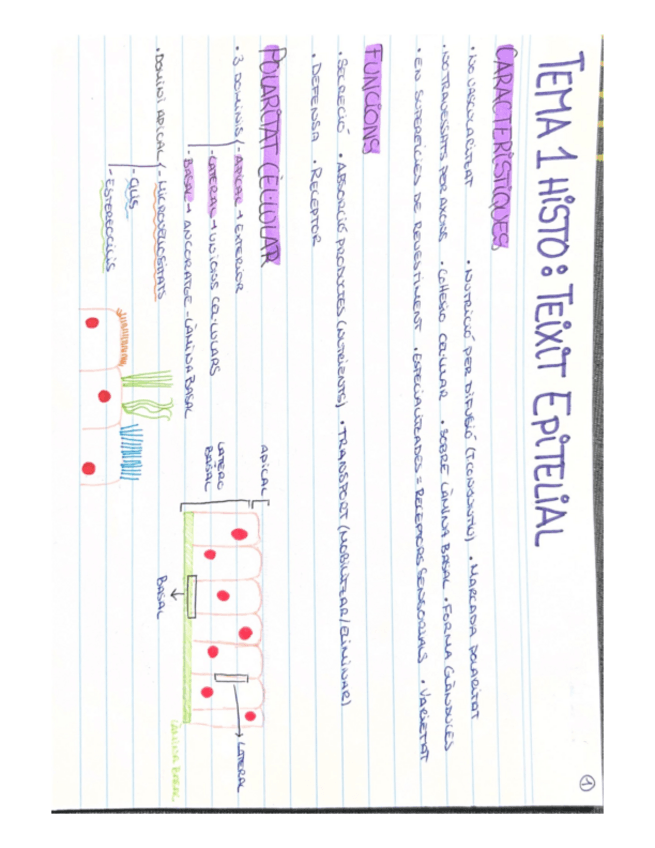 TEMA 1 HISTO: TEIXIT EPITELIAL
1
CARACTERÍSTIQUES
• NO VASCULARITZAT • NUTRICIÓ PER DIFUSIÓ (T. CONJUNTIU) • MARCADA POLARITAT
• NO TRAVESSATS PER AXONS • COHESIÓ CEL·LULAR • SOBRE LÀMINA BASAL • FORMA GLÀNDULES
• EN SUPERFÍCIES DE REVESTIMENT • ESPECIALITZADES = RECEPTORS SENSORIALS • VARIETAT
FUNCIONS
• SECRECIÓ • ABSORCIÓ PRODUCTES (NUTRIENTS) • TRANSPORT (MOBILITZAR/ELIMINAR)
• DEFENSA • RECEPTOR
POLARITAT CEL·LULAR
• 3 DOMINIS - APICAL → EXTERIOR
- LATERAL → UNIONS CEL·LULARS
- BASAL → ANCORATGE - LÀMINA BASAL
• DOMINI APICAL - MICROVELLOSITATS
- CILIS
- ESTEREOCILIS
APICAL
LATERO
BASAL
BASAL
LATERAL
LÀMINA BASAL